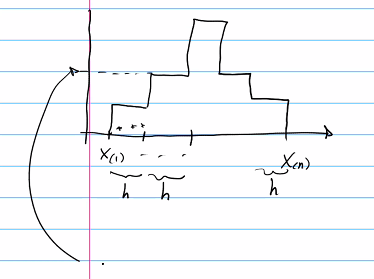 X(1) X(n)
h h h